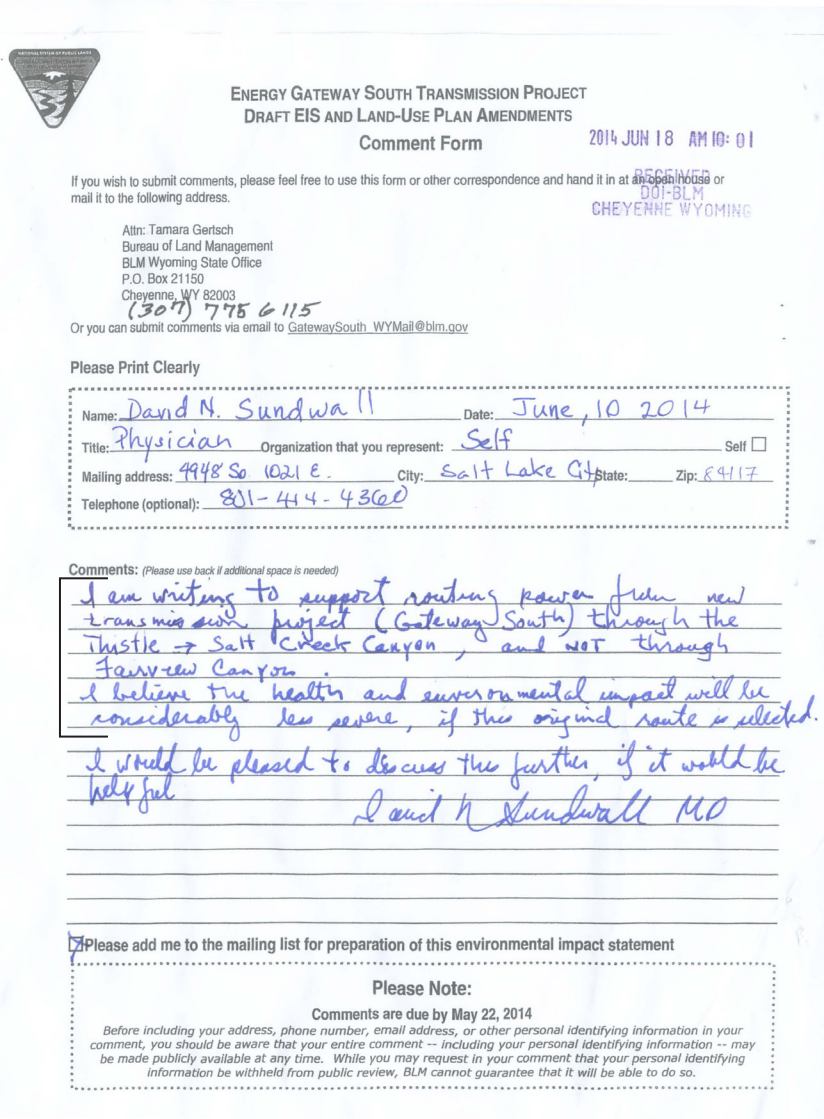 NATIONAL SYSTEM OF PUBLIC LANDS
ENERGY GATEWAY SOUTH TRANSMISSION PROJECT
DRAFT EIS AND LAND-USE PLAN AMENDMENTS
Comment Form
2014 JUN 18 AM 10: 01
If you wish to submit comments, please feel free to use this form or other correspondence and hand it in at an open house or
mail it to the following address.
RECEIVED
DOI-BLM
CHEYENNE WYOMING
Attn: Tamara Gertsch
Bureau of Land Management
BLM Wyoming State Office
P.O. Box 21150
Cheyenne, WY 82003
(307) 775 6115
Or you can submit comments via email to GatewaySouth_WYMail@blm.gov
Please Print Clearly
Name: David N. Sundwall Date: June, 10 2014
Title: Physician Organization that you represent: Self Self
Mailing address: 4948 So 1021 E. City: Salt Lake City State: Zip: 84117
Telephone (optional): 801-414-4360
Comments: (Please use back if additional space is needed)
I am writing to support routing power from new
transmission project (Gateway South) through the
Thistle → Salt Creek Canyon, and NOT through
Fairview Canyon.
I believe the health and environmental impact will be
considerably less severe, if this original route is selected.
I would be pleased to discuss this further, if it would be
helpful
David N Sundwall MD
Please add me to the mailing list for preparation of this environmental impact statement
Please Note:
Comments are due by May 22, 2014
Before including your address, phone number, email address, or other personal identifying information in your
comment, you should be aware that your entire comment -- including your personal identifying information -- may
be made publicly available at any time. While you may request in your comment that your personal identifying
information be withheld from public review, BLM cannot guarantee that it will be able to do so.